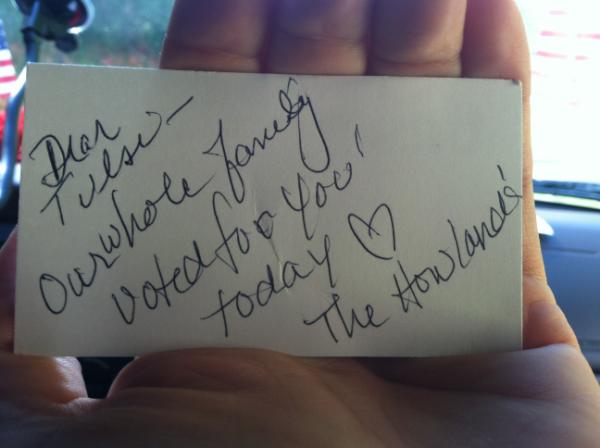 Dear
Tulsi-
Our whole family
voted for you!
today ♡
The Howlands